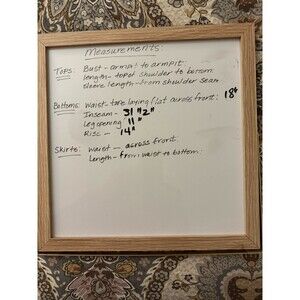 Measurements:
Tops: Bust - armpit to armpit:
length - top of shoulder to bottom:
sleeve length - from shoulder seam
Bottoms: Waist - tape laying flat across front: 18"
Inseam - 31 1/2"
Leg opening 11"
Rise - 14"
Skirts: waist - across front
Length - from waist to bottom: